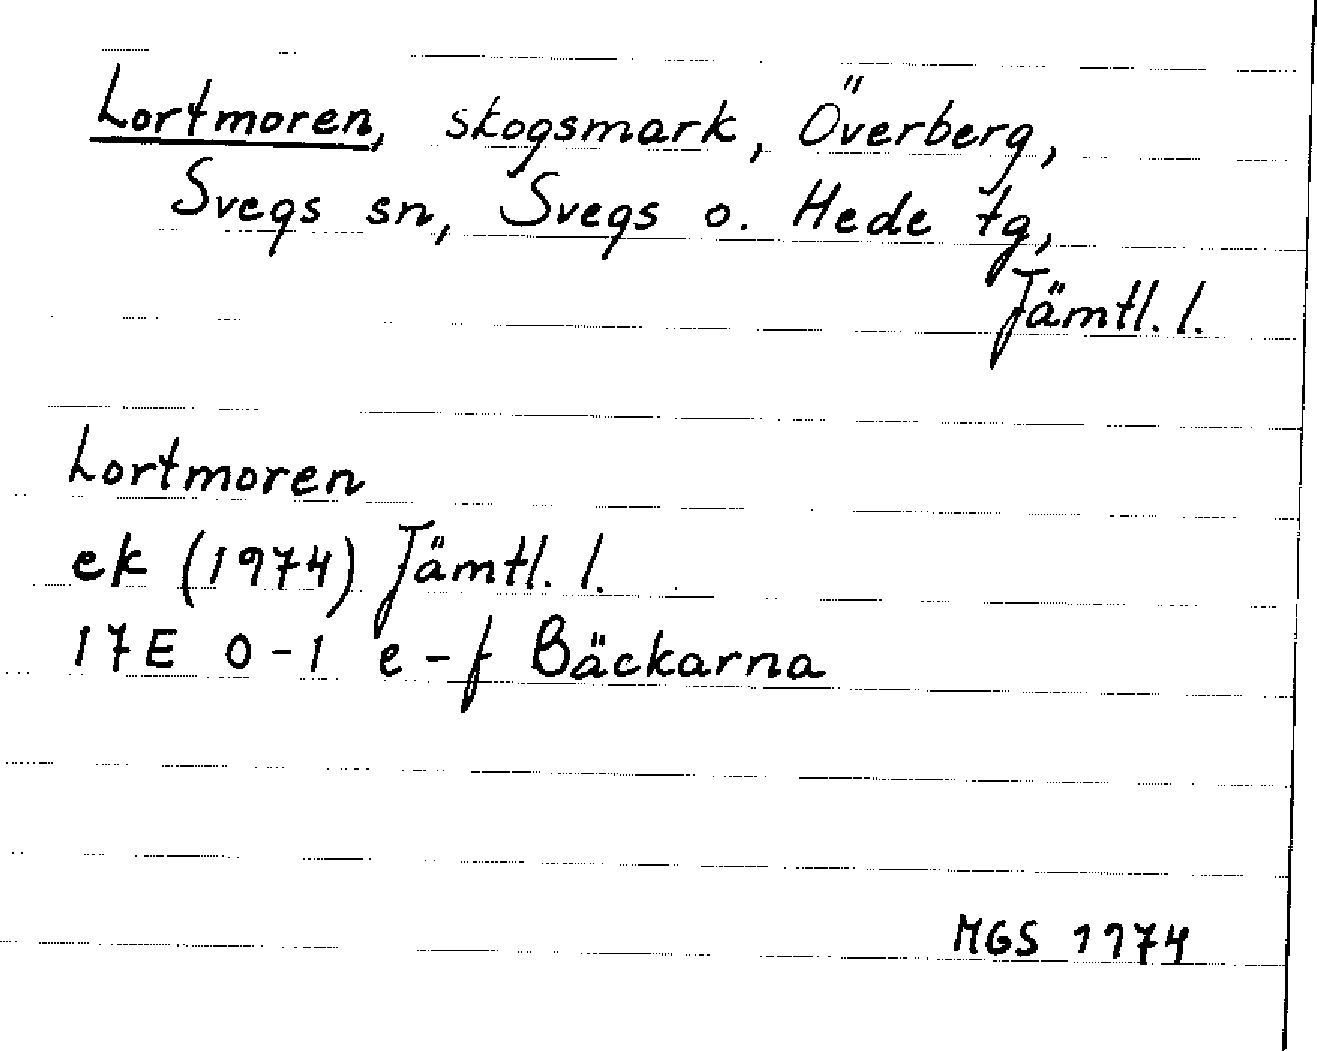 Lortmoren, skogsmark, Överberg,
Svegs sn, Svegs o. Hede tg,
Jämtl. l.
Lortmoren
ek (1974) Jämtl. l.
17E 0-1 e-f Bäckarna
MGS 1974